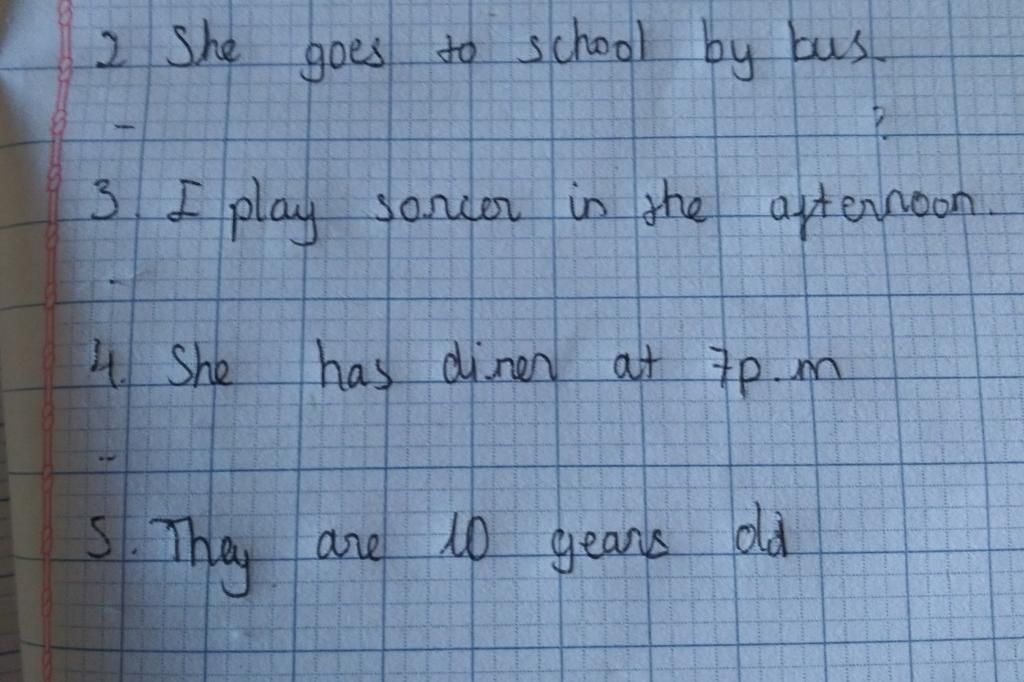 2 She goes to school by bus.
- ?
3. I play soncer in the afternoon.
-
4. She has diner at 7p.m
-
5. They are 10 years old